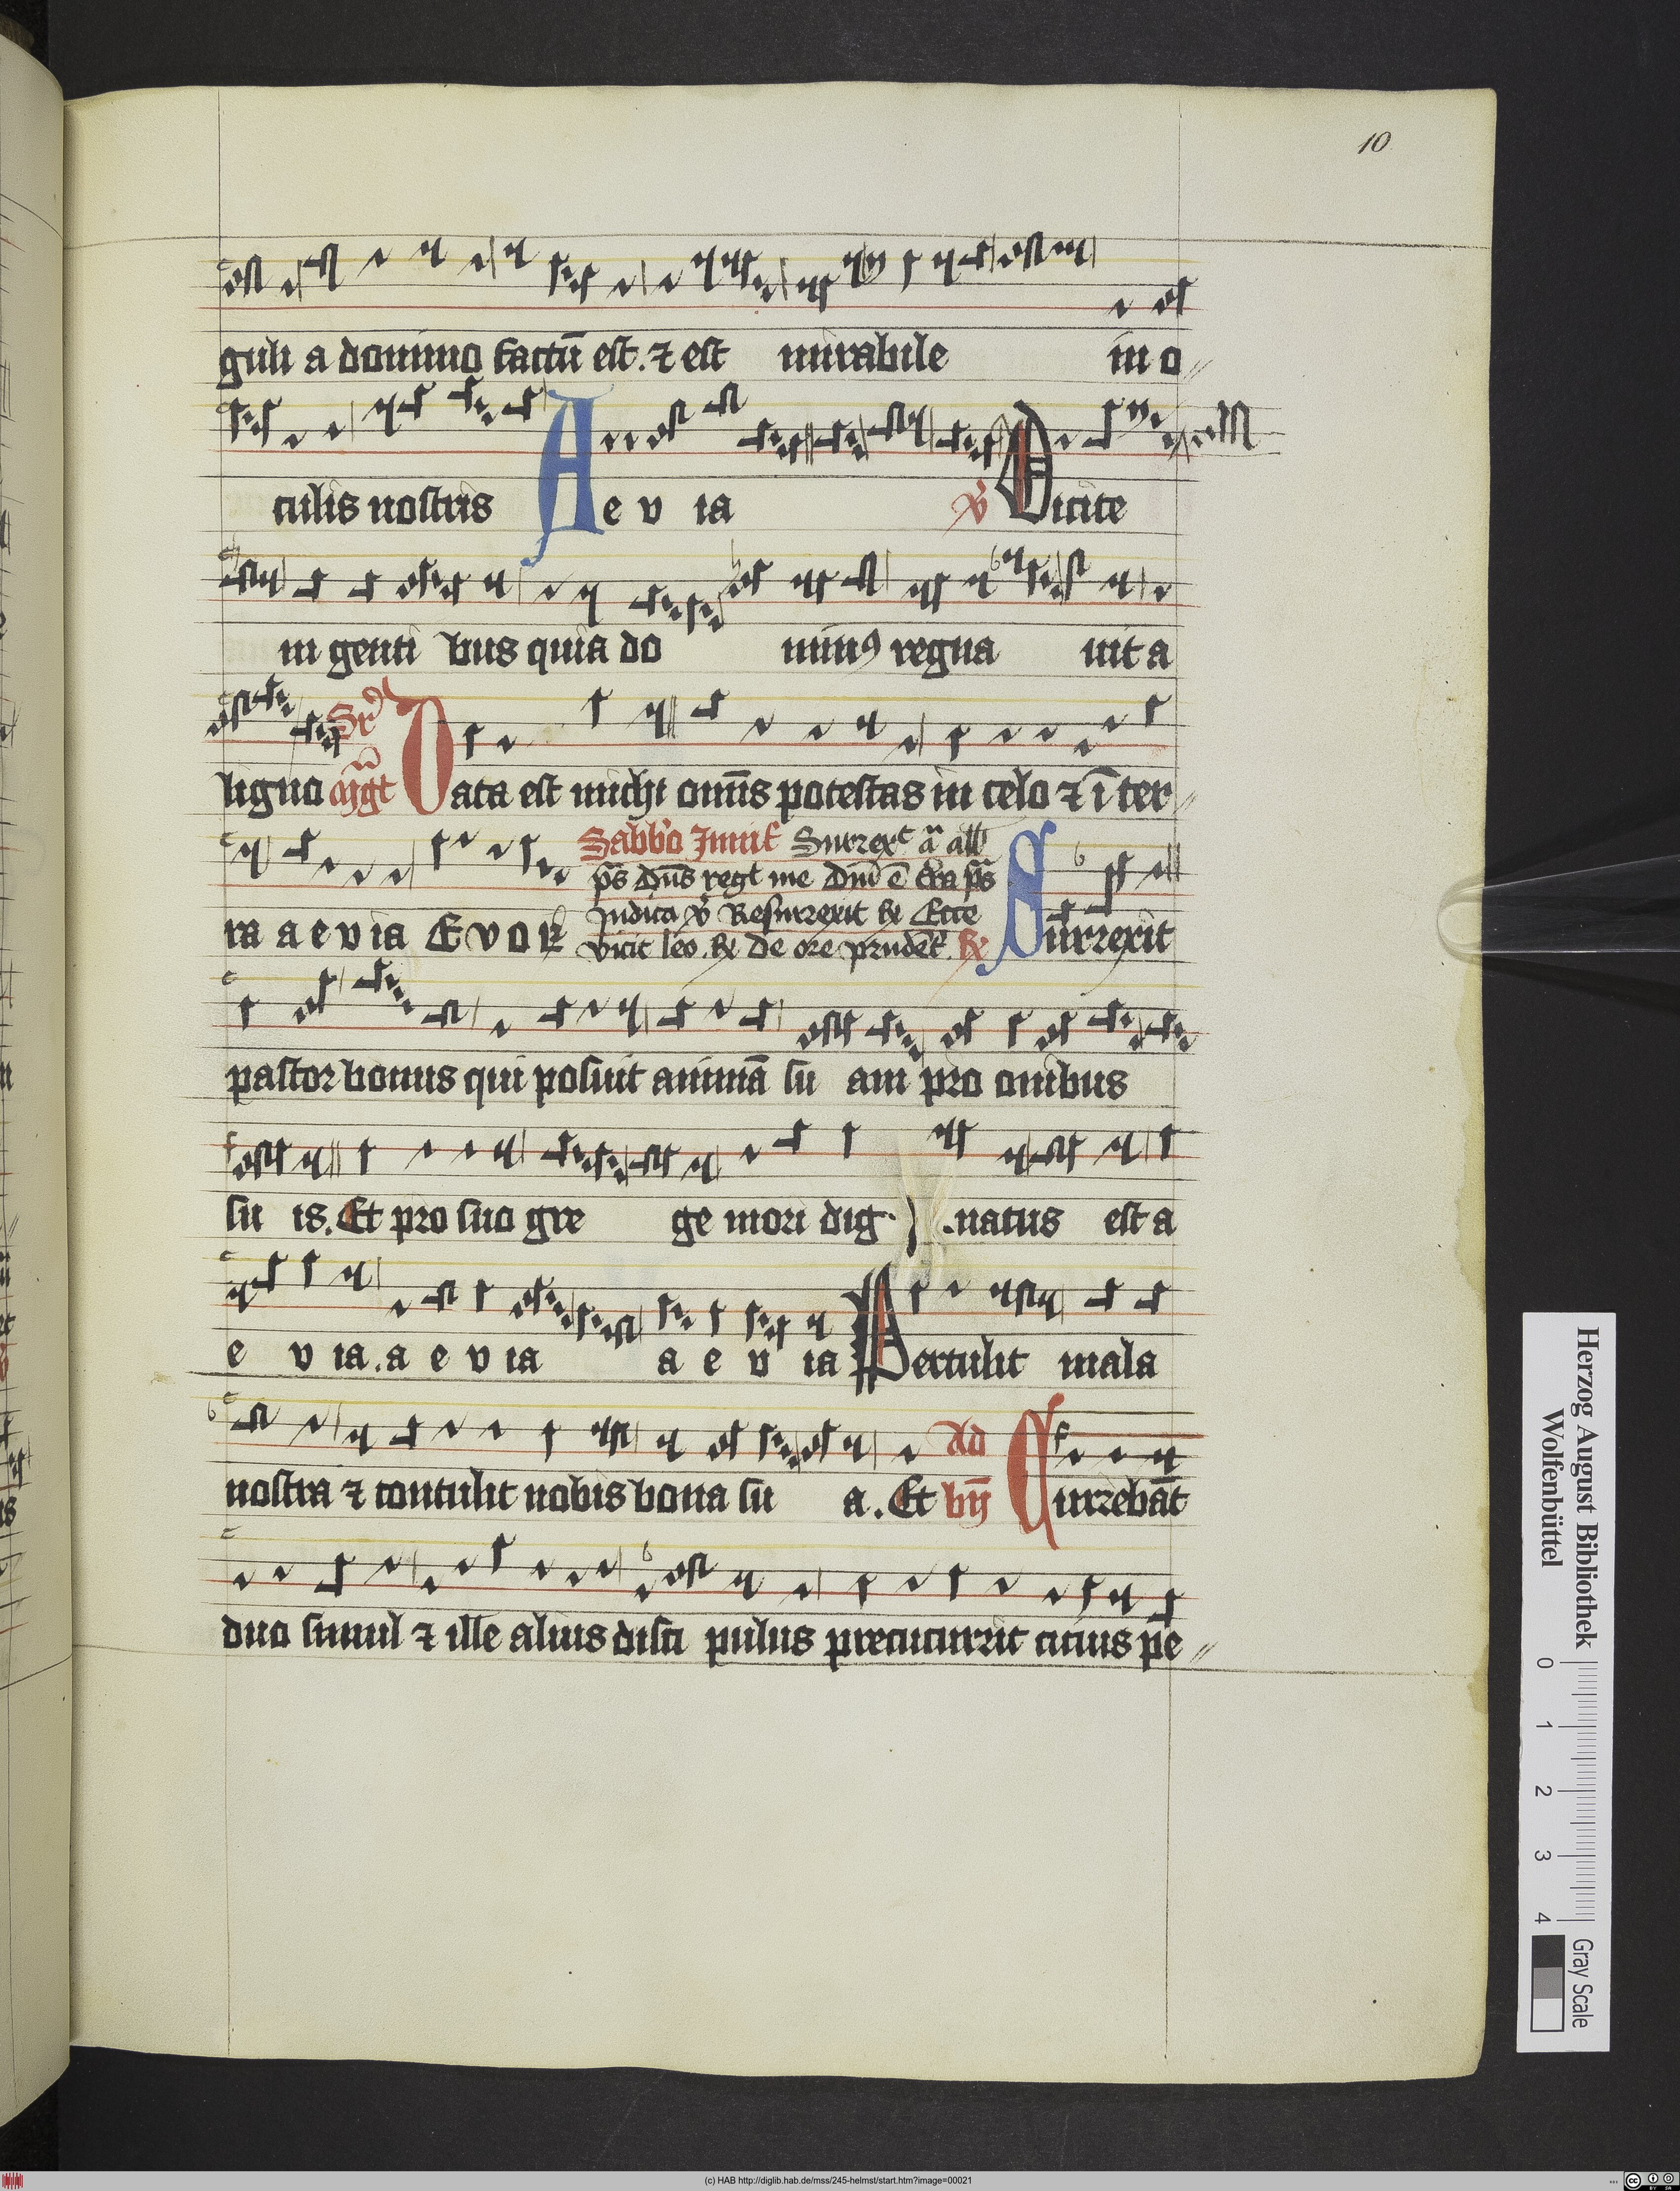 10
guli a domino factū est. ⁊ est mirabile in o
culis nostris A e v ia ꝟ Dicite
in genti bus quia do minꝰ regna uit a
ligno Data est michi om̄s potestas in celo ⁊ ī ter
Sabb̓o Surrex̓t a᷑ all̓
p̄s dn̄s reg̓t me Dn̄i ē p̄s
Judica ꝟ Resurrexit ℟ Ecce
ra a e v ia E v o Surrexit
vicit leo. ℟ De ore prudēt̓. ℟
pastor bonus qui posuit animā su am pro onibus
su is. Et pro suo gre ge mori dig natus est a
e v ia. a e v ia a e v ia Pertulit mala
nostra ⁊ contulit nobis bona su a. Et Ad bn̄ Currebāt
duo simul ⁊ ille alius disci pulus precucurrit citius pe
Herzog August Bibliothek
Wolfenbüttel
0 1 2 3 4
Gray Scale
(c) HAB http://diglib.hab.de/mss/245-helmst/start.htm?image=00021